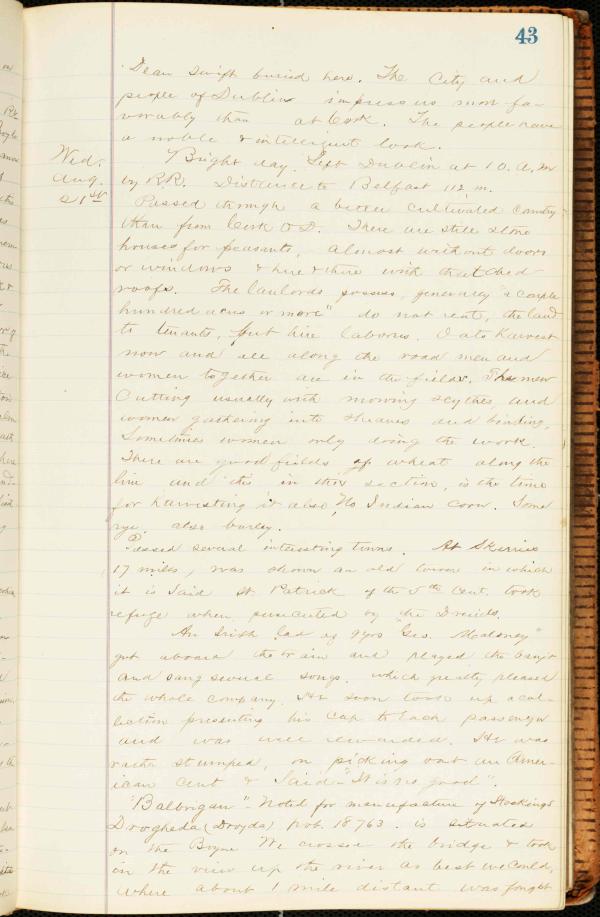 43
Dean Swift buried here. The City and
people of Dublin impress us more fa-
vorably than at Cork. The people have
a noble & intelligent look.
Wed.
Aug.
21st
Bright day. Left Dublin at 10. A. M
by R.R. Distance to Belfast 112 m.
Passed through a better cultivated country
than from Cork to D. There are still stone
houses for peasants, almost without doors
or windows & here & there with thatched
roofs. The landlords possess, generally "a couple
hundred acres or more" do not rent, the land
to tenants, but hire laborers. Oats harvest
now and all along the road men and
women together are in the fields. The men
cutting usually with mowing scythes, and
women gathering into sheaves and binding.
Sometimes women only doing the work.
There are good fields of wheat along the
line and this in this section, is the time
for harvesting it also, No Indian corn. Some
rye, also barley.
Passed several interesting towns. At Skerries
17 miles, was shown an old tower in which
it is said St. Patrick of the 5th Cent. took
refuge when persecuted by the Druids.
An Irish lad of 9 yrs "Geo. Maloney"
got aboard the train and played the banjo
and sang several songs, which greatly pleased
the whole company. He soon took up a col-
lection presenting his cap to each passenger
and was well rewarded. He was
rather stumped, on picking out an Amer-
ican cent & said "It is no good".
"Balbrigan" - Noted for manufacture of Stockings
Drogheda (Droyda) pop. 18763. is situated
on the Boyne We crossed the bridge & took
in the view up the river as best we could,
where about 1 mile distant was fought